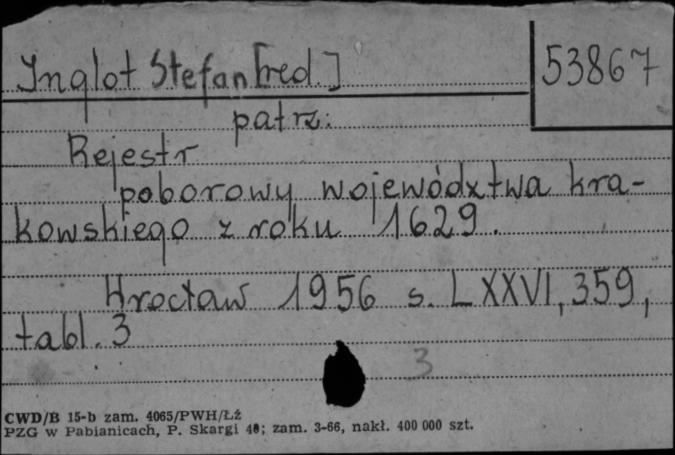 Inglot Stefan [red.]
53867
patrz:
Rejestr
poborowy województwa kra-
kowskiego z roku 1629.
Wrocław 1956 s. LXXVI, 359,
tabl. 3
3
CWD/B 15-b zam. 4065/PWH/Łż
PZG w Pabianicach, P. Skargi 40; zam. 3-66, nakł. 400 000 szt.